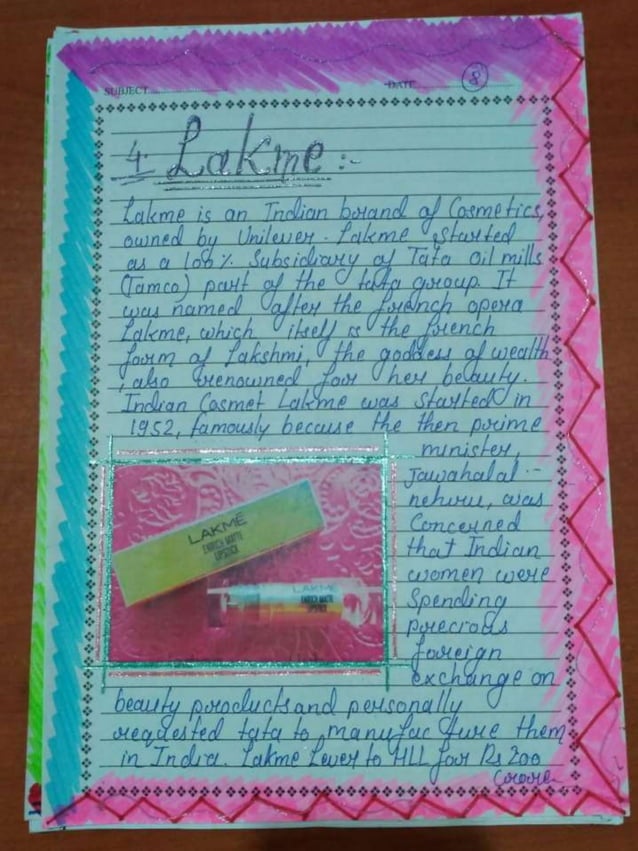 SUBJECT.................... DATE.................... 8
4. Lakme :-
Lakme is an Indian brand of Cosmetics,
owned by Unilever. Lakme started
as a 100% Subsidiary of Tata Oil mills
(Tamco) part of the tata group. It
was named after the french opera
Lakme, which itself is the french
form of Lakshmi, the goddess of wealth
, also renowned for her beauty.
Indian Cosmet Lakme was started in
1952, famously because the then prime
minister,
Jawahalal -
nehru, was
Concerned
that Indian
women were
Spending
precious
foreign
exchange on
LAKMÉ
ENRICH MATTE
LIPSTICK
LAKMÉ
ENRICH MATTE
LIPSTICK
beauty products and personally
requested tata to manufacture them
in India. Lakme Lever to HLL for Rs 200
crore